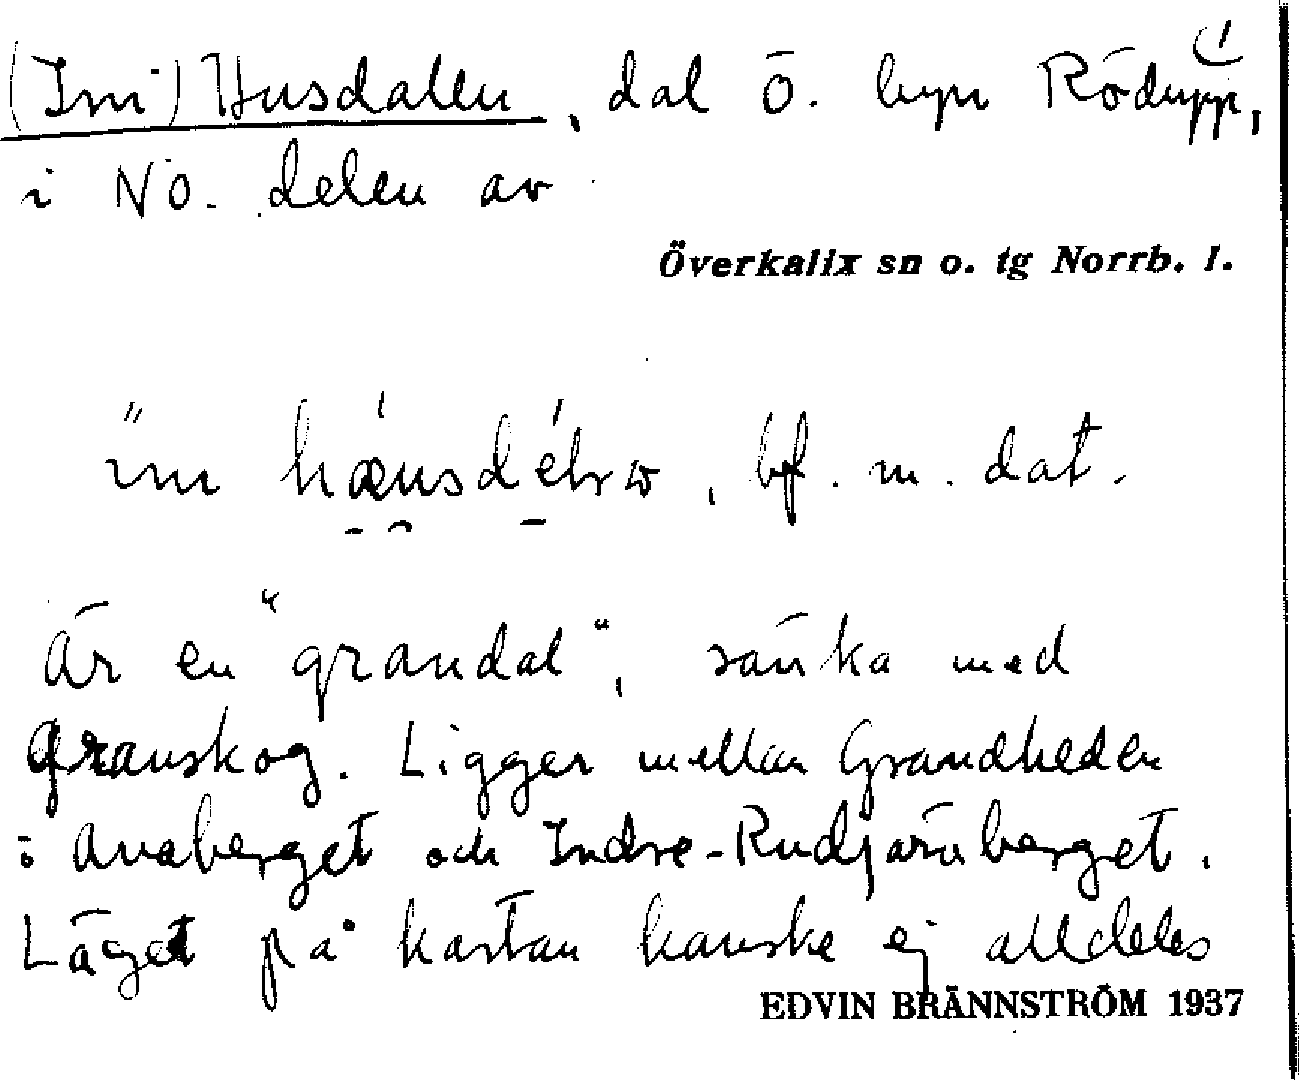 (Imi) Husdalen, dal Ö. byn Rödupp,
i NÖ. delen av
Överkalix sn o. tg Norrb. l.
bf. m. dat.
Är en "grandal", sänka med
granskog. Ligger mellan Grandheden
o Anaberget och Indre-Rudjärvberget.
Läget på kartan kanske ej alldeles
EDVIN BRÄNNSTRÖM 1937